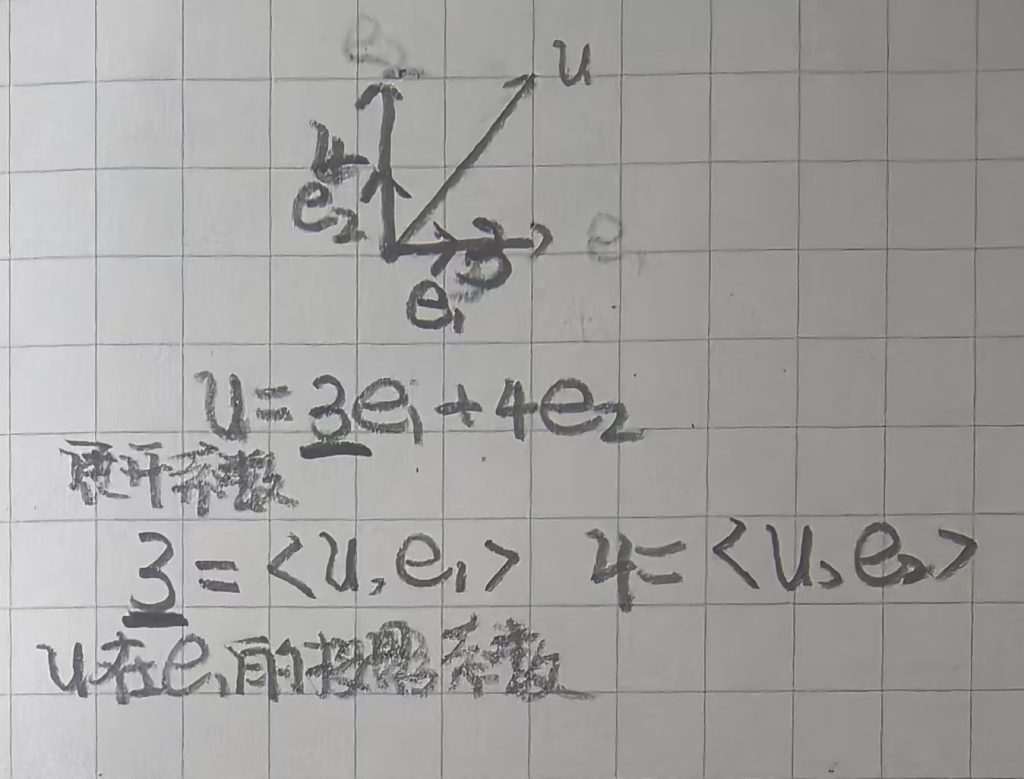 u
4
e₂
3
e₁
u=3e₁+4e₂
展开系数
3=<u,e₁> 4=<u,e₂>
u在e₁的投影系数